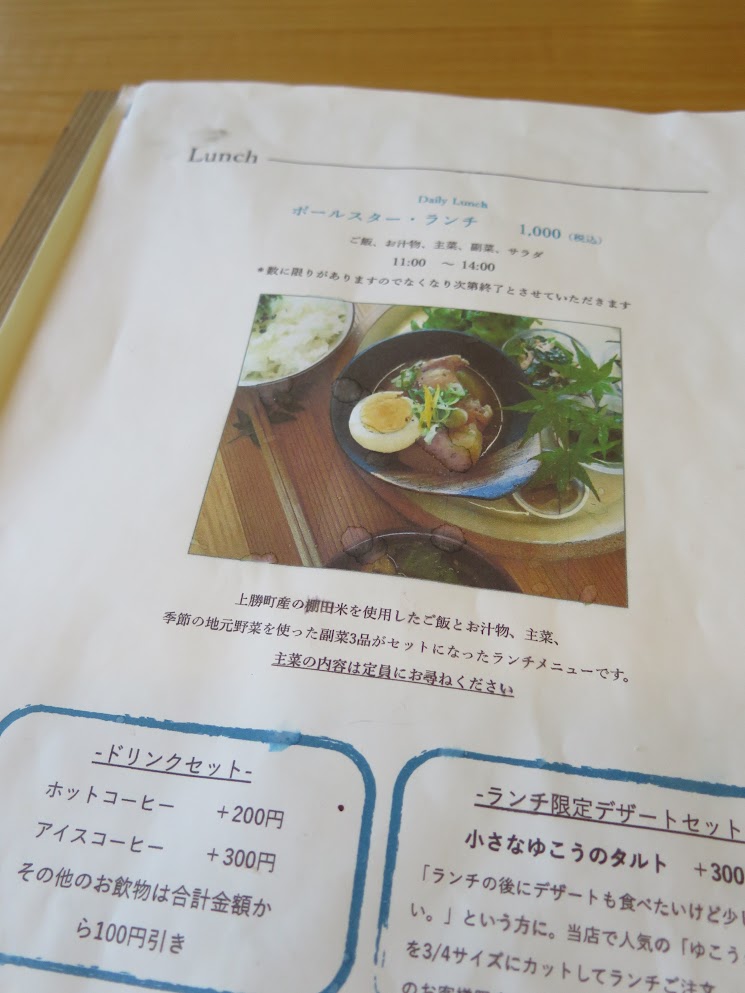 Lunch
Daily Lunch
ポールスター・ランチ 1,000（税込）
ご飯、お汁物、主菜、副菜、サラダ
11:00 ～ 14:00
*数に限りがありますのでなくなり次第終了とさせていただきます
上勝町産の棚田米を使用したご飯とお汁物、主菜、
季節の地元野菜を使った副菜3品がセットになったランチメニューです。
主菜の内容は定員にお尋ねください
-ドリンクセット-
ホットコーヒー +200円
アイスコーヒー +300円
その他のお飲物は合計金額か
ら100円引き
-ランチ限定デザートセット
小さなゆこうのタルト +300
「ランチの後にデザートも食べたいけど少し
い。」という方に。当店で人気の「ゆこう
を3/4サイズにカットしてランチご注文
のお客様